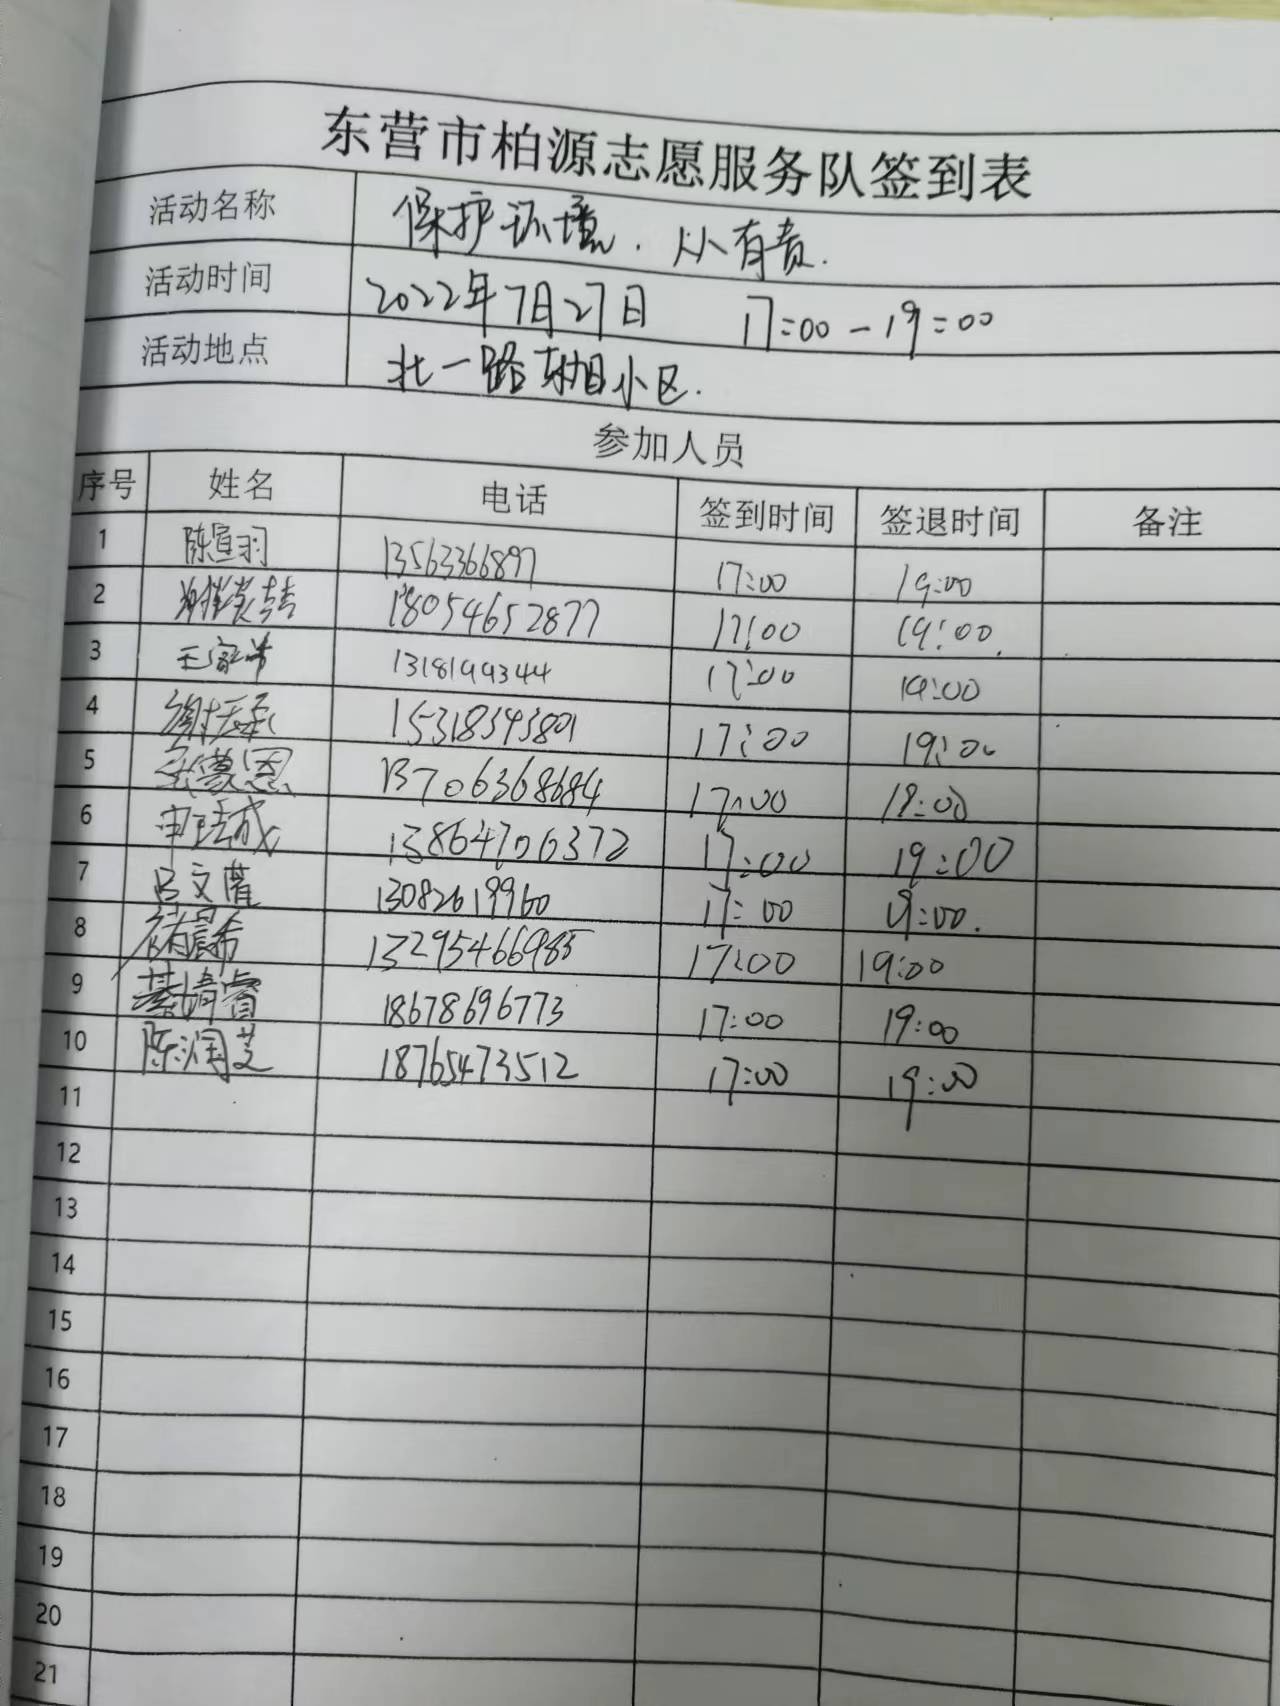 东营市柏源志愿服务队签到表
活动名称 保护环境.从有责.
活动时间 2022年7月27日 17:00-19:00
活动地点 北一路东旭小区.
参加人员
序号 姓名 电话 签到时间 签退时间 备注
1 陈宣羽 13563366897 17:00 19:00
2 18054652877 17:00 19:00.
3 1318199344 17:00 19:00
4 15318343801 17:00 19:00
5 蒙恩 13706368684 17:00 19:00
6 13864706372 17:00 19:00
7 吕文 13082619960 17:00 19:00.
8 晨希 13295466985 17:00 19:00
9 綦婧睿 18678696773 17:00 19:00
10 陈润芝 18765473512 17:00 19:00
11
12
13
14
15
16
17
18
19
20
21